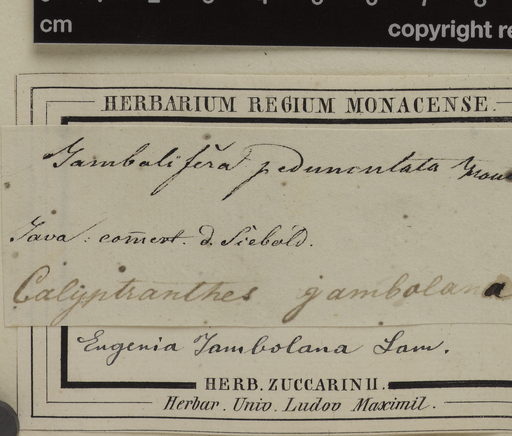 cm
copyright re
HERBARIUM REGIUM MONACENSE.
Jambolifera pedunculata
Java: com̄ert. d. Siebold.
Calyptranthes jambolana
Eugenia Jambolana Lam.
HERB. ZUCCARINII.
Herbar. Univ. Ludov Maximil.